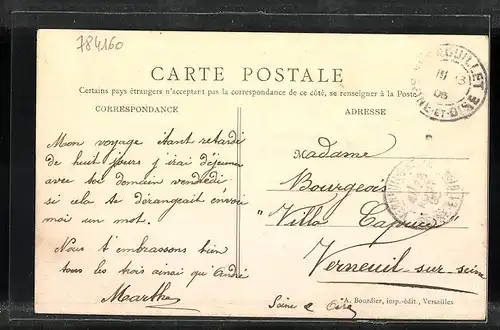 784160
CARTE POSTALE
Certains pays étrangers n'acceptant pas la correspondance de ce côté, se renseigner à la Poste
CORRESPONDANCE
ADRESSE
Mon voyage étant retardé
de huit jours j'irai déjeuner
avec toi demain vendredi
si cela te dérangeait envoi
moi un mot.
Nous t'embrassons bien
tous les trois ainsi qu'André
Marthe
Madame
Bourgeois
"Villa Caprice"
Verneuil-sur-seine
Seine & Oise
A. Bourdier, imp.-édit., Versailles
SEINE-ET-OISE